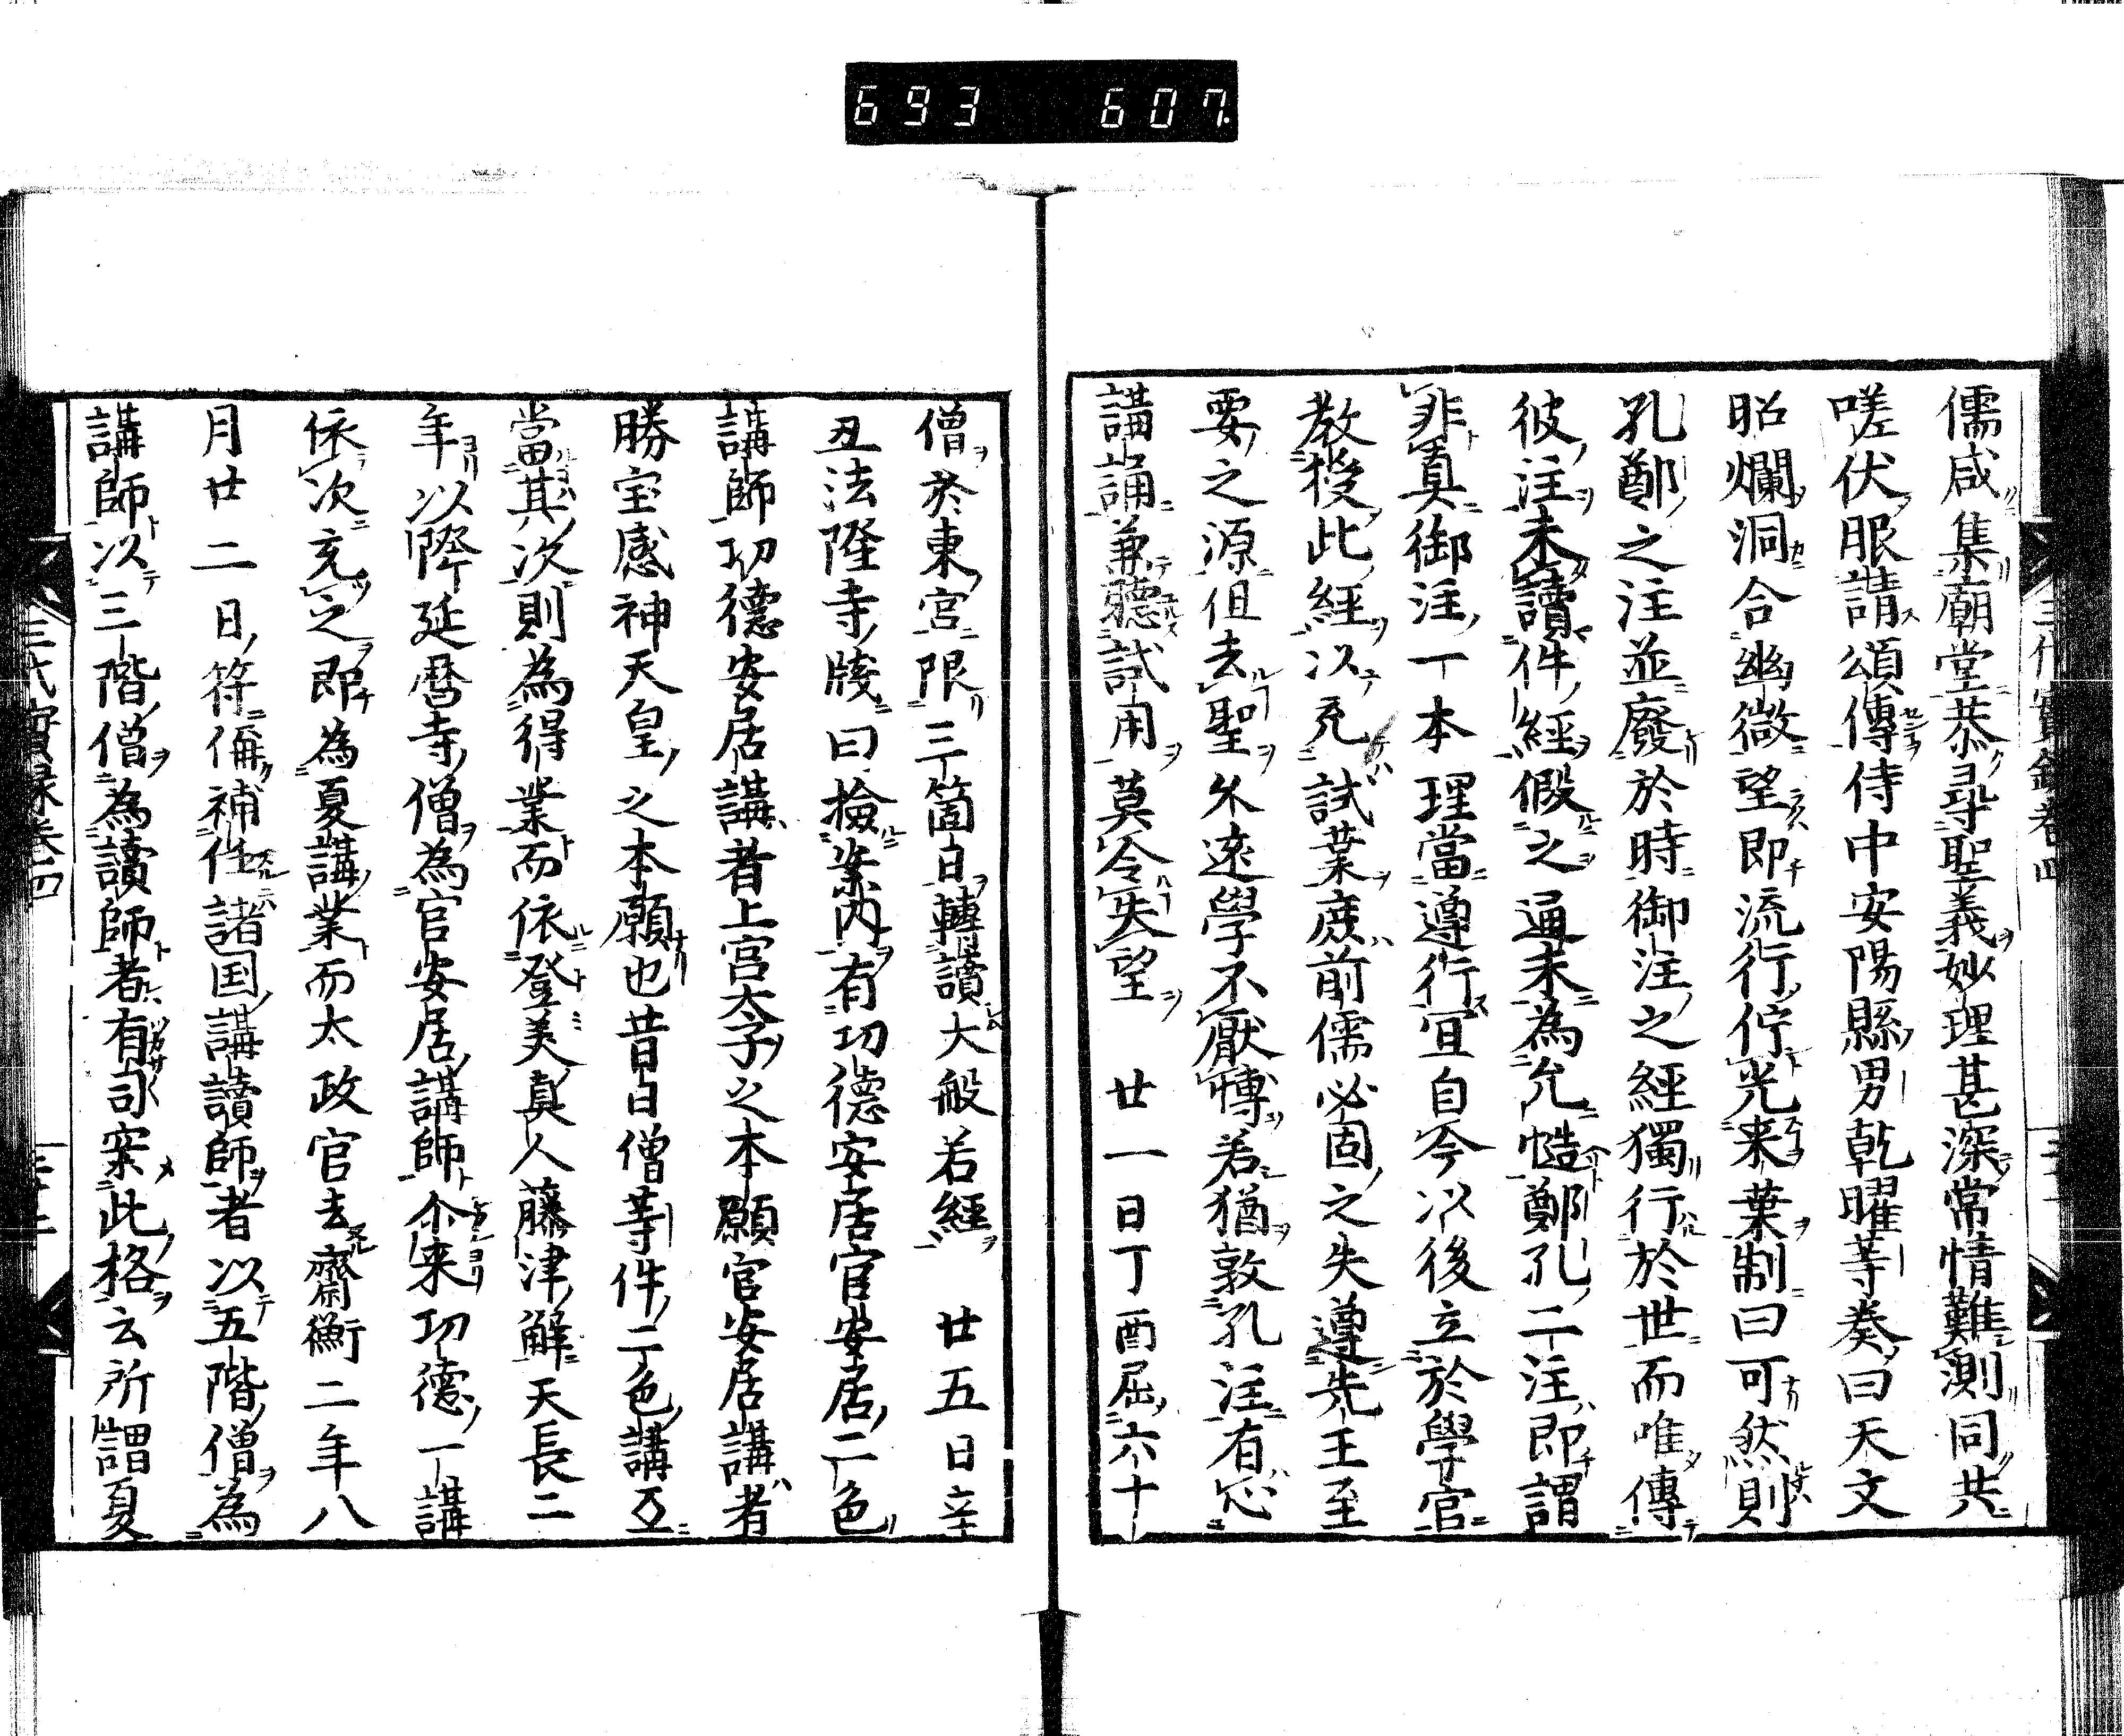 693 607
儒咸集廟堂恭尋聖義妙理甚深常情難測同共
嗟伏服請頒傳侍中安陽縣男乾曜等奏曰天文
昭爛洞合幽微望即流行佇光来葉制曰可然則
孔鄭之注並廢於時御注之經獨行於世而唯傳
彼注未讀件經假之通未為允愜鄭孔二注即謂
非真御注一本理當遵行宜自今以後立於學官
教授此經以充試業庶前儒必固之失遵先王至
要之源但去聖久遠學不厭博若猶敦孔注有心
講誦兼聽試用莫令失望　廿一日丁酉屈六十
僧於東宮限三箇日轉讀大般若經　廿五日辛
丑法隆寺牋曰撿案内有功德安居官安居二色
講師功德安居講者上宮太子之本願官安居講者
勝宝感神天皇之本願也昔日僧等件二色講互
當其次則為得業而依登美真人藤津解天長二
年以降延暦寺僧為官安居講師尒来功德一講
依次充之即為夏講業而太政官去齋衡二年八
月廿二日符偁補任諸国講讀師者以五階僧為
講師以三階僧為讀師者有司案此格云所謂夏
三代實録巻四